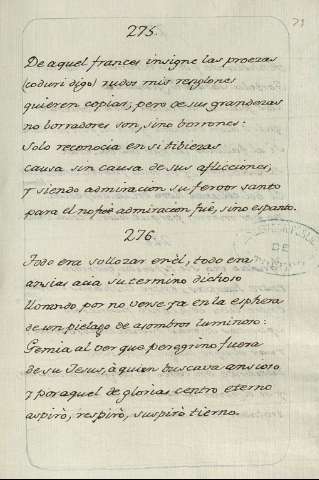 79
275.
De aquel frances insigne las proezas
(coduri digo) rudos mis renglones
quieren copiar, pero de sus grandezas
no borradores son, sino borrones:
Solo reconocia en si tibiezas
causa sin causa de sus aflicciones,
Y siendo admiracion su fervor santo
para el no fue admiracion fuè, sino espanto.
276.
Todo era sollozar en èl, todo era
ansias acia su termino dichoso
llorando por no verse ya en la esphera
de un pielago de asombros luminoso:
Gemia al ver que peregrino fuera
de su Jesus, à quien buscava ansioso
y por aquel de glorias centro eterno
aspirò, respirò, suspirò tierno.
DE